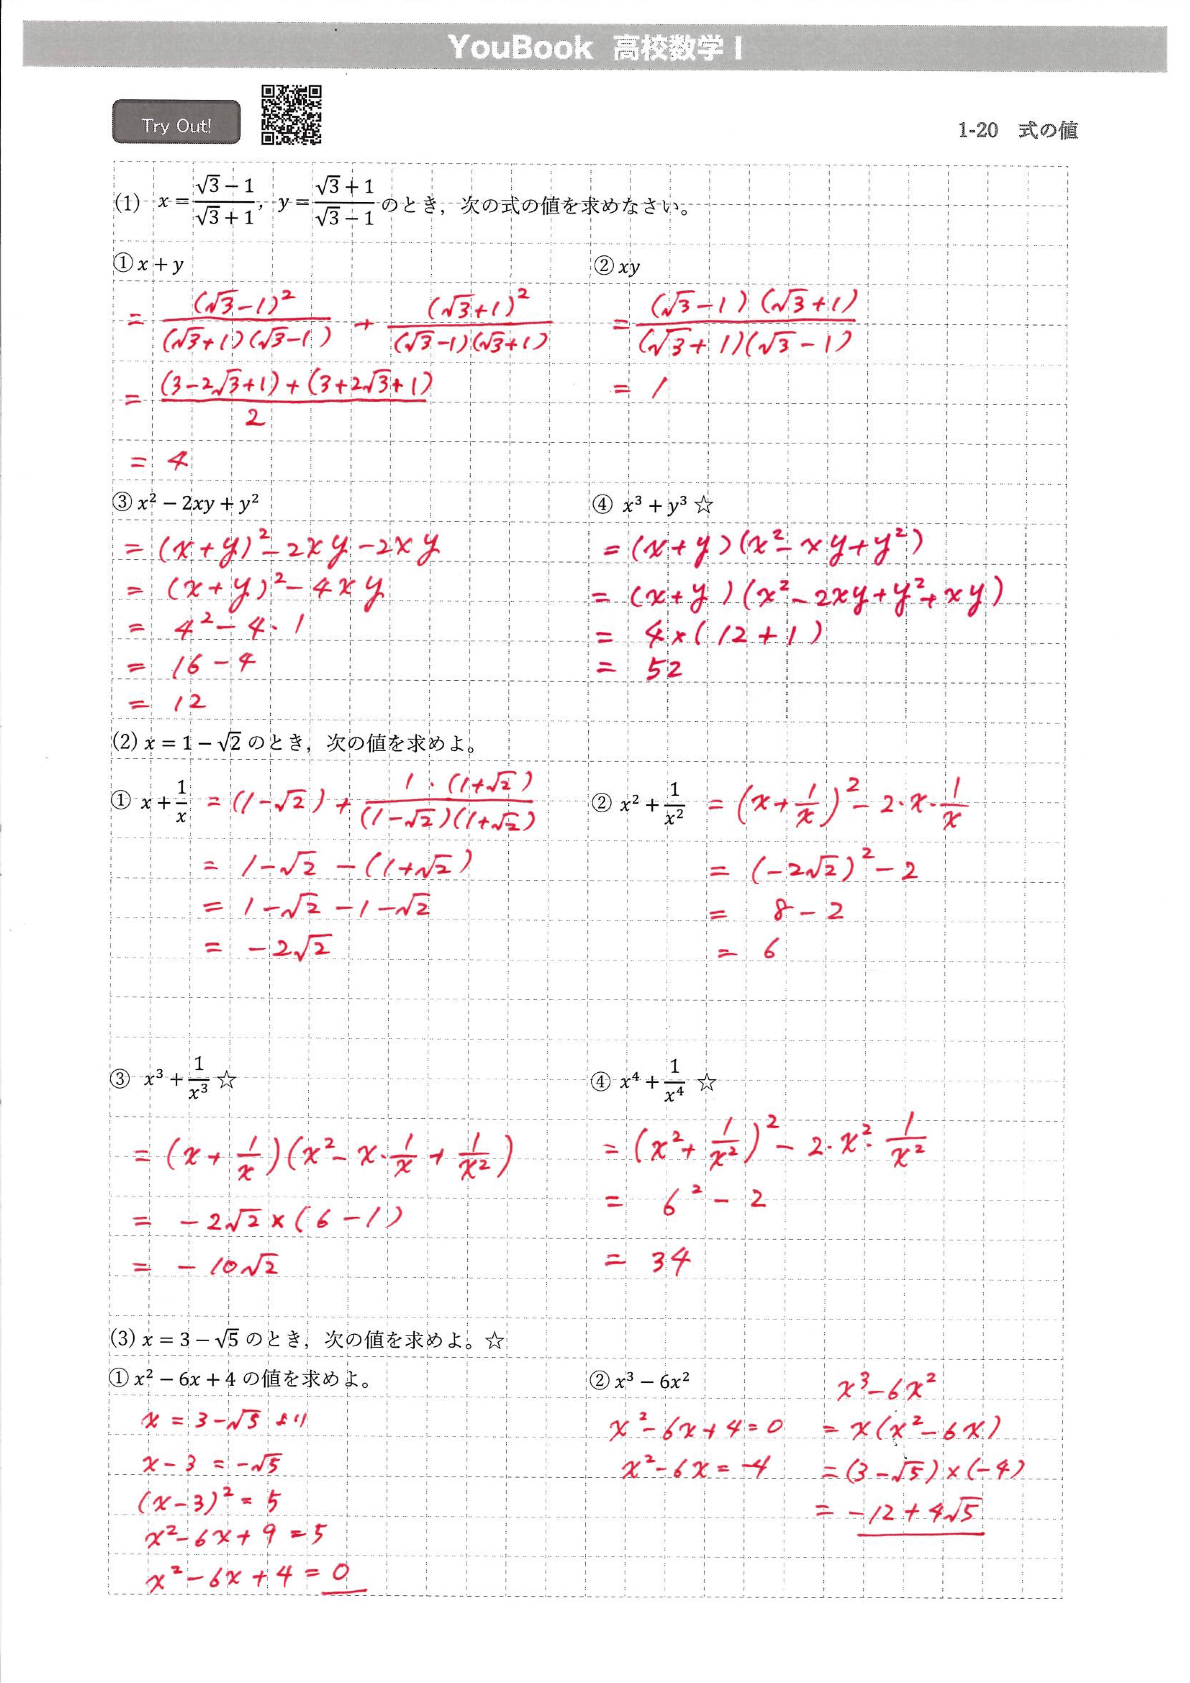 YouBook 高校数学 I
Try Out!
1-20 式の値
(1) x = (√3 − 1)/(√3 + 1), y = (√3 + 1)/(√3 − 1) のとき, 次の式の値を求めなさい。
① x + y
= (√3−1)²/((√3+1)(√3−1)) + (√3+1)²/((√3−1)(√3+1))
= ((3−2√3+1)+(3+2√3+1))/2
= 4
② xy
= ((√3−1)(√3+1))/((√3+1)(√3−1))
= 1
③ x² − 2xy + y²
= (x+y)²−2xy−2xy
= (x+y)²−4xy
= 4²−4·1
= 16−4
= 12
④ x³ + y³ ☆
= (x+y)(x²−xy+y²)
= (x+y)(x²−2xy+y²+xy)
= 4×(12+1)
= 52
(2) x = 1 − √2 のとき, 次の値を求めよ。
① x + 1/x = (1−√2) + (1·(1+√2))/((1−√2)(1+√2))
= 1−√2 −(1+√2)
= 1−√2 −1−√2
= −2√2
② x² + 1/x² = (x+1/x)²−2·x·1/x
= (−2√2)²−2
= 8−2
= 6
③ x³ + 1/x³ ☆
= (x+1/x)(x²−x·1/x+1/x²)
= −2√2×(6−1)
= −10√2
④ x⁴ + 1/x⁴ ☆
= (x²+1/x²)²−2·x²·1/x²
= 6²−2
= 34
(3) x = 3 − √5 のとき, 次の値を求めよ。☆
① x² − 6x + 4 の値を求めよ。
x = 3−√5 より
x−3 = −√5
(x−3)² = 5
x²−6x+9 = 5
x²−6x+4 = 0
② x³ − 6x²
x²−6x+4=0
x²−6x=−4
x³−6x²
= x(x²−6x)
= (3−√5)×(−4)
= −12+4√5